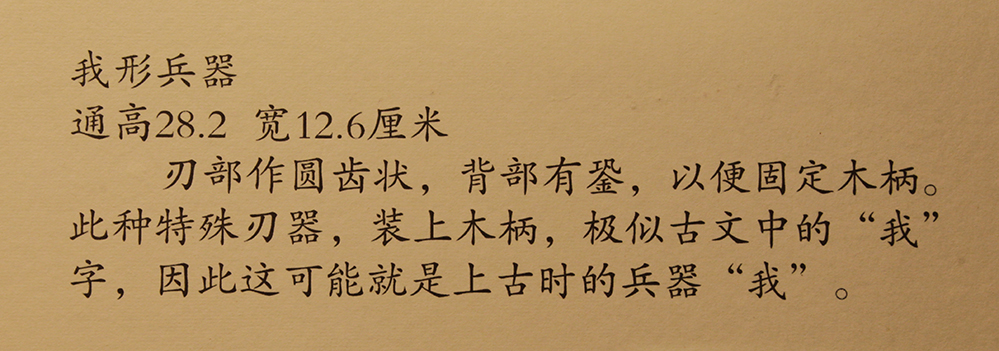 我形兵器
通高28.2 宽12.6厘米
刃部作圆齿状，背部有銎，以便固定木柄。
此种特殊刃器，装上木柄，极似古文中的“我”
字，因此这可能就是上古时的兵器“我”。